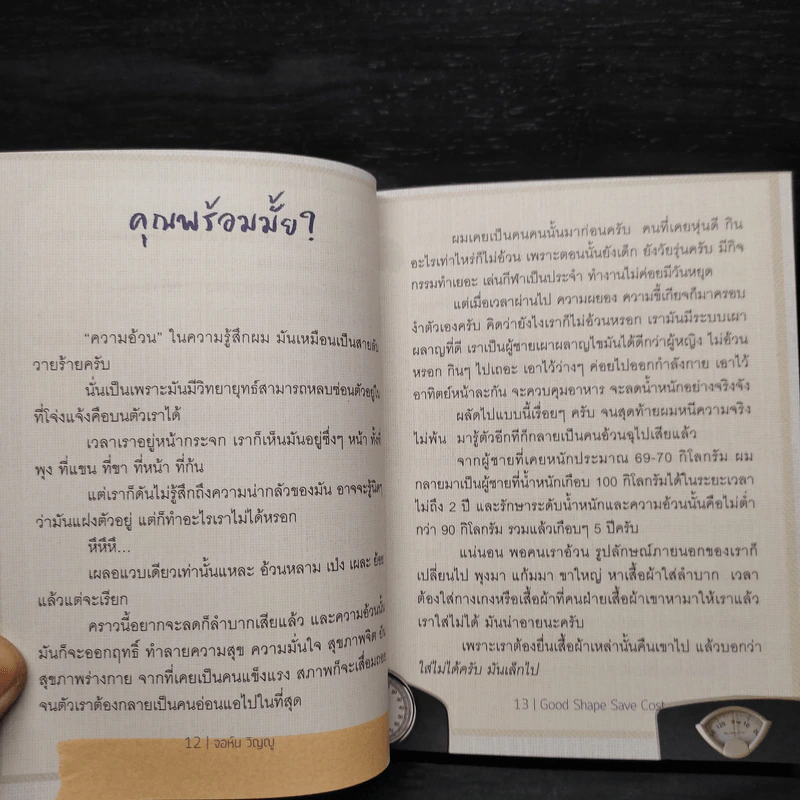 คุณพร้อมมั้ย?
"ความอ้วน" ในความรู้สึกผม มันเหมือนเป็นสายลับ
วายร้ายครับ
นั่นเป็นเพราะมันมีวิทยายุทธ์สามารถหลบซ่อนตัวอยู่ใน
ที่โจ่งแจ้งคือบนตัวเราได้
เวลาเราอยู่หน้ากระจก เราก็เห็นมันอยู่ซึ่งๆ หน้า ทั้งที่
พุง ที่แขน ที่ขา ที่หน้า ที่ก้น
แต่เราก็ดันไม่รู้สึกถึงความน่ากลัวของมัน อาจจะรู้นิดๆ
ว่ามันแฝงตัวอยู่ แต่ก็ทำอะไรเราไม่ได้หรอก
หึหึหึ...
เผลอแวบเดียวเท่านั้นแหละ อ้วนหลาม เป่ง เผละ ย้อย
แล้วแต่จะเรียก
คราวนี้อยากจะลดก็ลำบากเสียแล้ว และความอ้วนนั้น
มันก็จะออกฤทธิ์ ทำลายความสุข ความมั่นใจ สุขภาพจิต ยัน
สุขภาพร่างกาย จากที่เคยเป็นคนแข็งแรง สภาพก็จะเสื่อมถอย
จนตัวเราต้องกลายเป็นคนอ่อนแอไปในที่สุด
12 | จอห์น วิญญู
ผมเคยเป็นคนคนนั้นมาก่อนครับ คนที่เคยหุ่นดี กิน
อะไรเท่าไหร่ก็ไม่อ้วน เพราะตอนนั้นยังเด็ก ยังวัยรุ่นครับ มีกิจ
กรรมทำเยอะ เล่นกีฬาเป็นประจำ ทำงานไม่ค่อยมีวันหยุด
แต่เมื่อเวลาผ่านไป ความผยอง ความขี้เกียจก็มาครอบ
งำตัวเองครับ คิดว่ายังไงเราก็ไม่อ้วนหรอก เรามันมีระบบเผา
ผลาญที่ดี เราเป็นผู้ชายเผาผลาญไขมันได้ดีกว่าผู้หญิง ไม่อ้วน
หรอก กินๆ ไปเถอะ เอาไว้ว่างๆ ค่อยไปออกกำลังกาย เอาไว้
อาทิตย์หน้าละกัน จะควบคุมอาหาร จะลดน้ำหนักอย่างจริงจัง
ผลัดไปแบบนี้เรื่อยๆ ครับ จนสุดท้ายผมหนีความจริง
ไม่พ้น มารู้ตัวอีกทีก็กลายเป็นคนอ้วนฉุไปเสียแล้ว
จากผู้ชายที่เคยหนักประมาณ 69-70 กิโลกรัม ผม
กลายมาเป็นผู้ชายที่น้ำหนักเกือบ 100 กิโลกรัมได้ในระยะเวลา
ไม่ถึง 2 ปี และรักษาระดับน้ำหนักและความอ้วนนั้นคือไม่ต่ำ
กว่า 90 กิโลกรัม รวมแล้วเกือบๆ 5 ปีครับ
แน่นอน พอคนเราอ้วน รูปลักษณ์ภายนอกของเราก็
เปลี่ยนไป พุงมา แก้มมา ขาใหญ่ หาเสื้อผ้าใส่ลำบาก เวลา
ต้องใส่กางเกงหรือเสื้อผ้าที่คนฝ่ายเสื้อผ้าเขาหามาให้เราแล้ว
เราใส่ไม่ได้ มันน่าอายนะครับ
เพราะเราต้องยื่นเสื้อผ้าเหล่านั้นคืนเขาไป แล้วบอกว่า
ใส่ไม่ได้ครับ มันเล็กไป
13 | Good Shape Save Cost